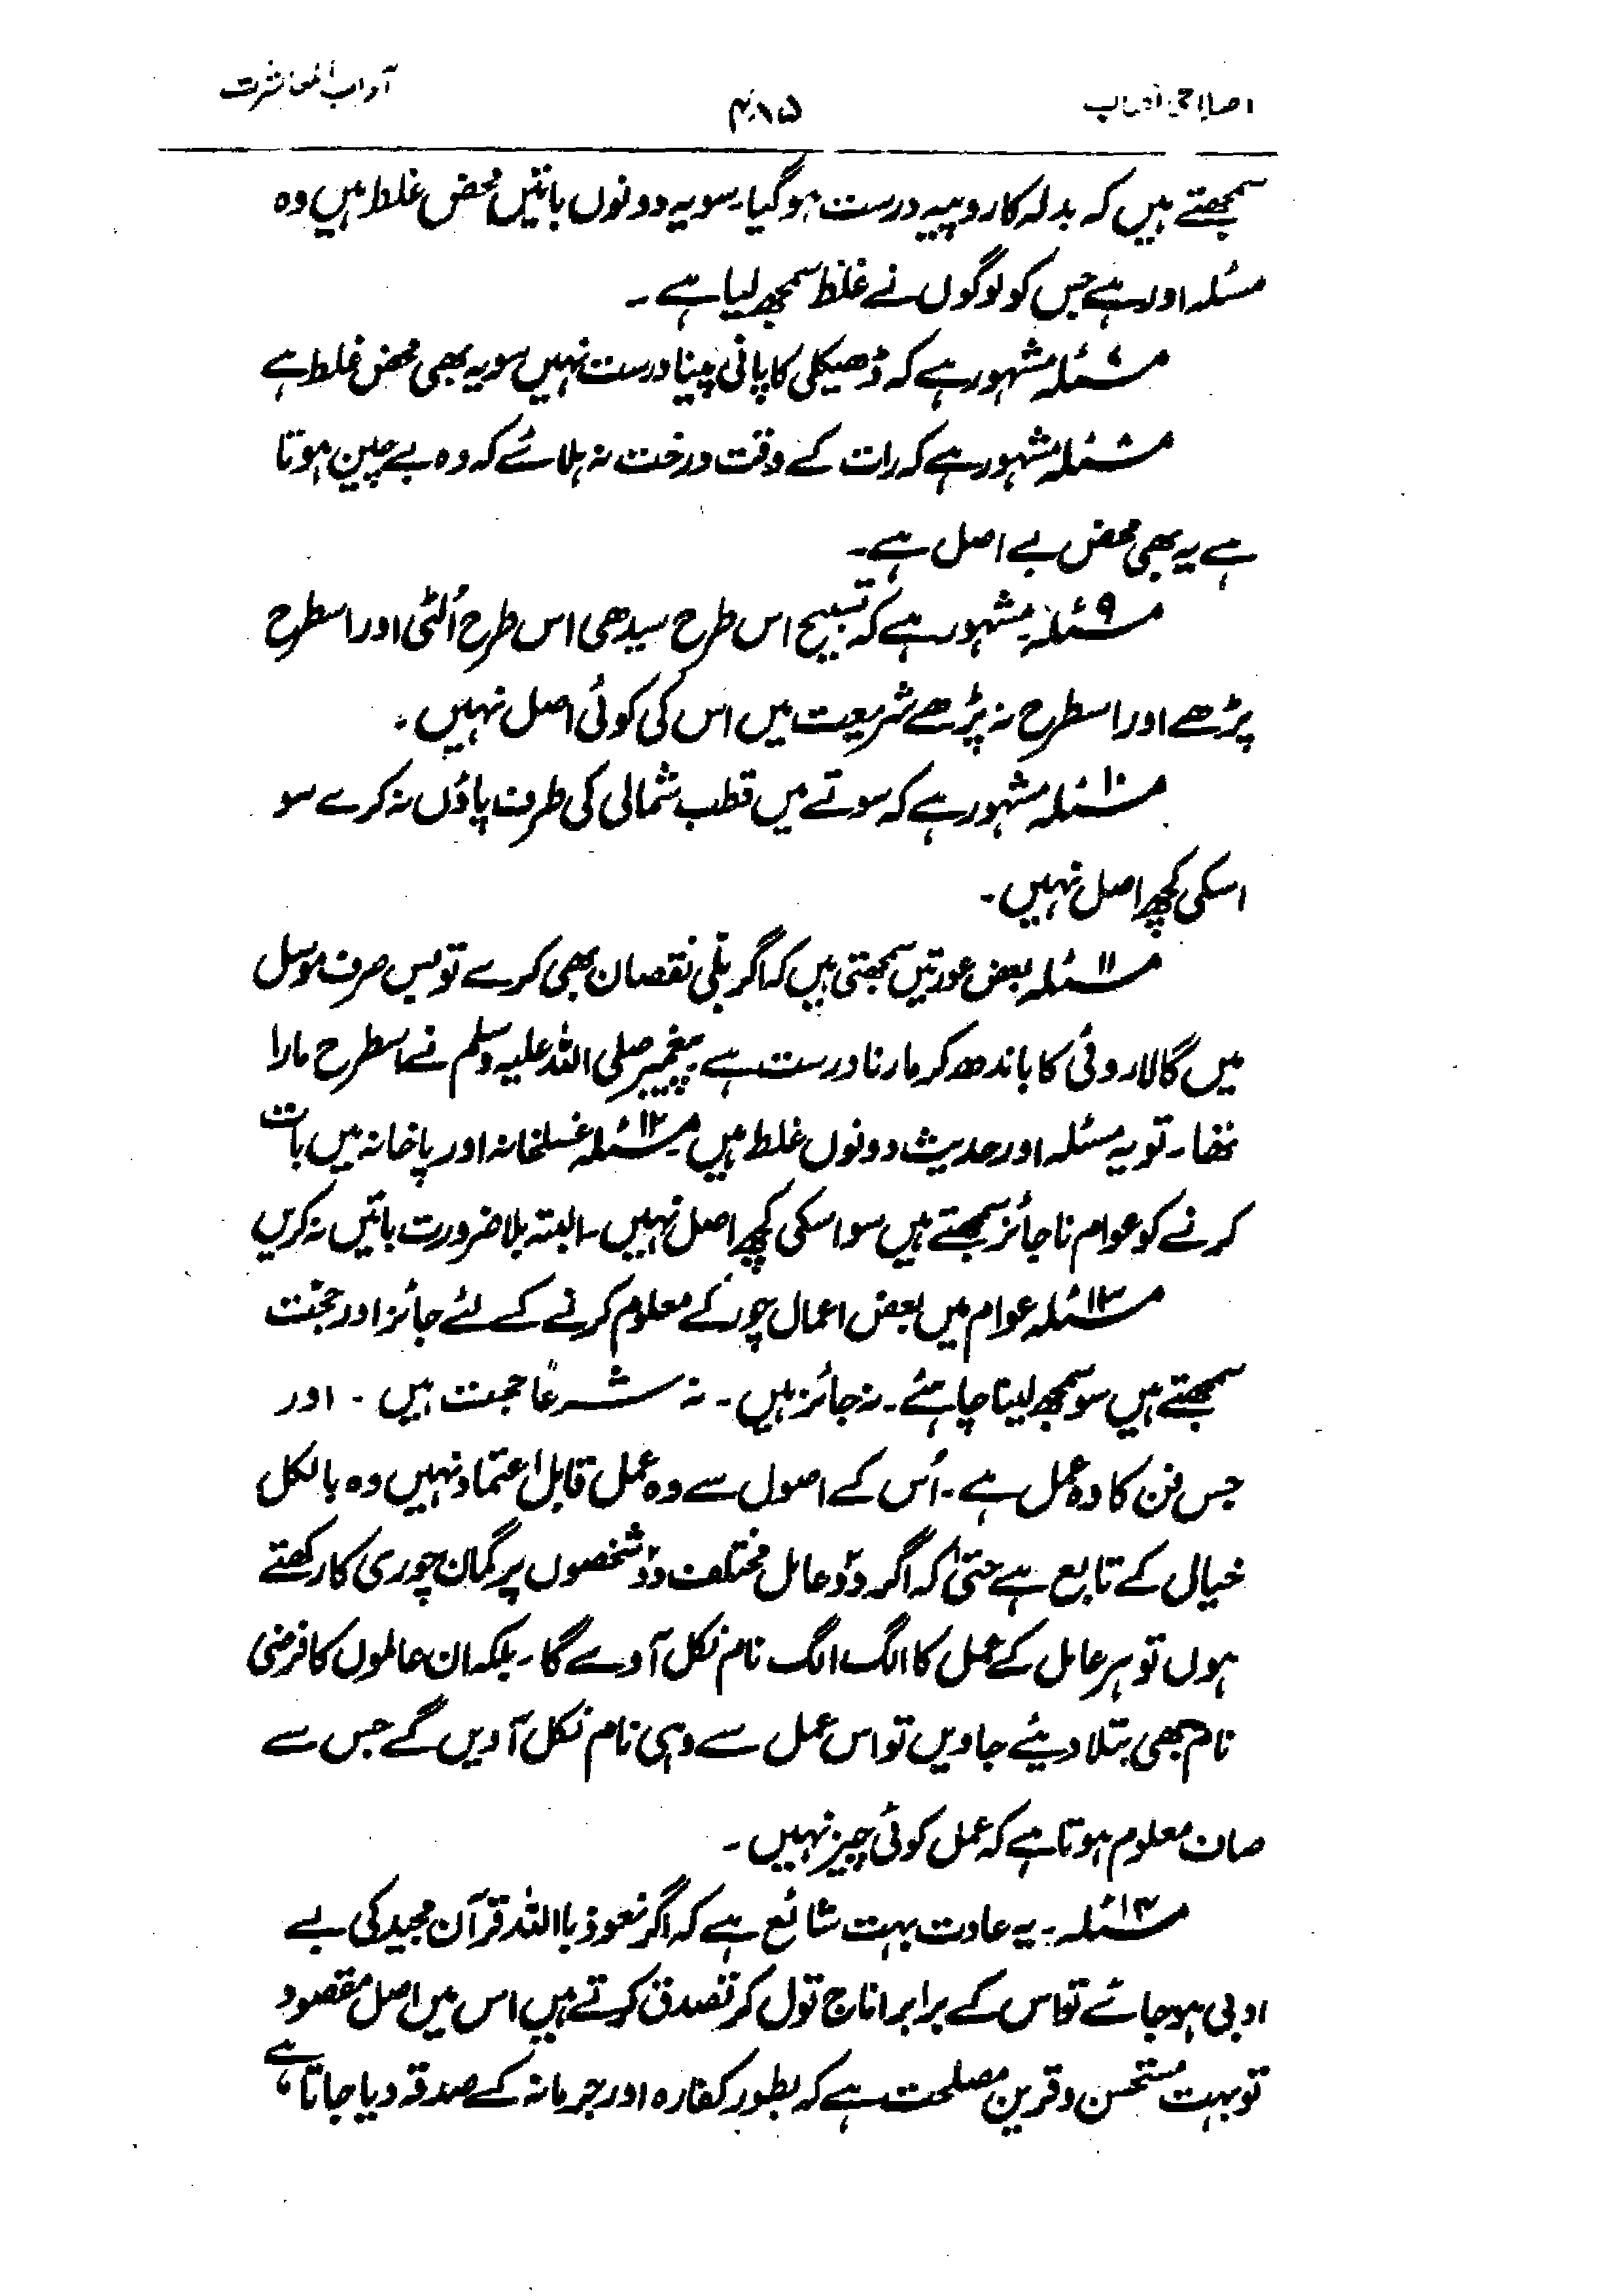 اصلاحی نصاب ۴۸۵ آداب المعاشرت
سمجھتے ہیں کہ بدلہ کا روپیہ درست ہو گیا۔ سو یہ دونوں باتیں محض غلط ہیں وہ
مسئلہ اور ہے جس کو لوگوں نے غلط سمجھ لیا ہے ۔
مسئلہ مشہور ہے کہ ڈھیکلی کا پانی پینا درست نہیں سو یہ بھی محض غلط ہے
مسئلہ ۸ مشہور ہے کہ رات کے وقت درخت نہ ہلائے کہ وہ بے چین ہوتا
ہے یہ بھی محض بے اصل ہے۔
مسئلہ ۹ مشہور ہے کہ تسبیح اس طرح سیدھی اس طرح اُلٹی اور اسطرح
پڑھے اور اسطرح نہ پڑھے شریعت میں اس کی کوئی اصل نہیں ۔
مسئلہ ۱۰ مشہور ہے کہ سوتے میں قطب شمالی کی طرف پاؤں نہ کرے سو
اسکی کچھ اصل نہیں ۔
مسئلہ ۱۱ بعض عورتیں سمجھتی ہیں کہ اگر بلّی نقصان بھی کرے تو بس صرف موسل
میں گالا روئی کا باندھ کر مارنا درست ہے پیغمبر صلی اللہ علیہ وسلم نے اسطرح مارا
تھا۔ تو یہ مسئلہ اور حدیث دونوں غلط ہیں مسئلہ ۱۲ غسلخانہ اور پاخانہ میں بات
کرنے کو عوام ناجائز سمجھتے ہیں سو اسکی کچھ اصل نہیں ۔ البتہ بلا ضرورت باتیں نہ کریں
مسئلہ ۱۳ عوام میں بعض اعمال چور کے معلوم کرنے کے لئے جائز اور حجّت
سمجھتے ہیں سو سمجھ لینا چاہئے ۔ نہ جائز ہیں ۔ نہ شرعاً حجت ہیں ۔ اور
جس فن کا وہ عمل ہے ۔ اُس کے اصول سے وہ عمل قابل اعتماد نہیں وہ بالکل
خیال کے تابع ہے حتیٰ کہ اگر دو عامل مختلف دو شخصوں پر گمان چوری کا رکھتے
ہوں تو ہر عامل کے عمل کا الگ الگ نام نکل آوے گا ۔ بلکہ ان عاملوں کا فرضی
نام بھی بتلا دیئے جاویں تو اس عمل سے وہی نام نکل آویں گے جس سے
صاف معلوم ہوتا ہے کہ عمل کوئی چیز نہیں ۔
مسئلہ ۱۴ ۔ یہ عادت بہت شائع ہے کہ اگر نعوذ باللہ قرآن مجید کی بے
ادبی ہو جائے تو اس کے برابر اناج تول کر تصدق کرتے ہیں اس میں اصل مقصود
تو بہت مُستحسن و قرین مصلحت ہے کہ بطور کفارہ اور جرمانہ کے صدقہ دیا جاتا ہے،